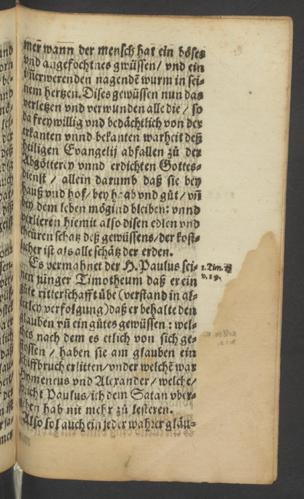 mer wann der mensch hat ein böses
vnd angefochtnes gwüssen / vnd ein
jmerwerenden nagendē wurm in sei-
nem hertzen. Dises gewüssen nun das
verletzen vnd verwunden alle die / so
da freywillig vnd bedächtlich von der
erkanten vnnd bekanten warheit deß
heiligen Evangelij abfallen zů der
Abgötterey vnnd erdichten Gottes-
dienst / allein darumb daß sie bey
hauß vnd hof / bey haab vnd gůt / vñ
bey dem leben mögind bleiben: vnnd
verlieren hiemit also disen edlen vnd
theüren schatz deß gewüssens / der köst-
licher ist als alle schätz der erden.
Es vermahnet der H. Paulus sei-
nen jünger Timotheum daß er ein
gůte ritterschafft übe (verstand in al-
lerley verfolgung) daß er behalte den
glauben vñ ein gůtes gewüssen: wel-
ches nach dem es etlich von sich ge-
stossen / haben sie am glauben ein
schiffbruch erlitten / vnder welchē war
Hymeneus vnd Alexander / welche /
spricht Paulus / ich dem Satan vber-
geben hab nit mehr zů lesteren.
Also sol auch ein jeder wahrer gläu-
1. Tim.
v. 19.